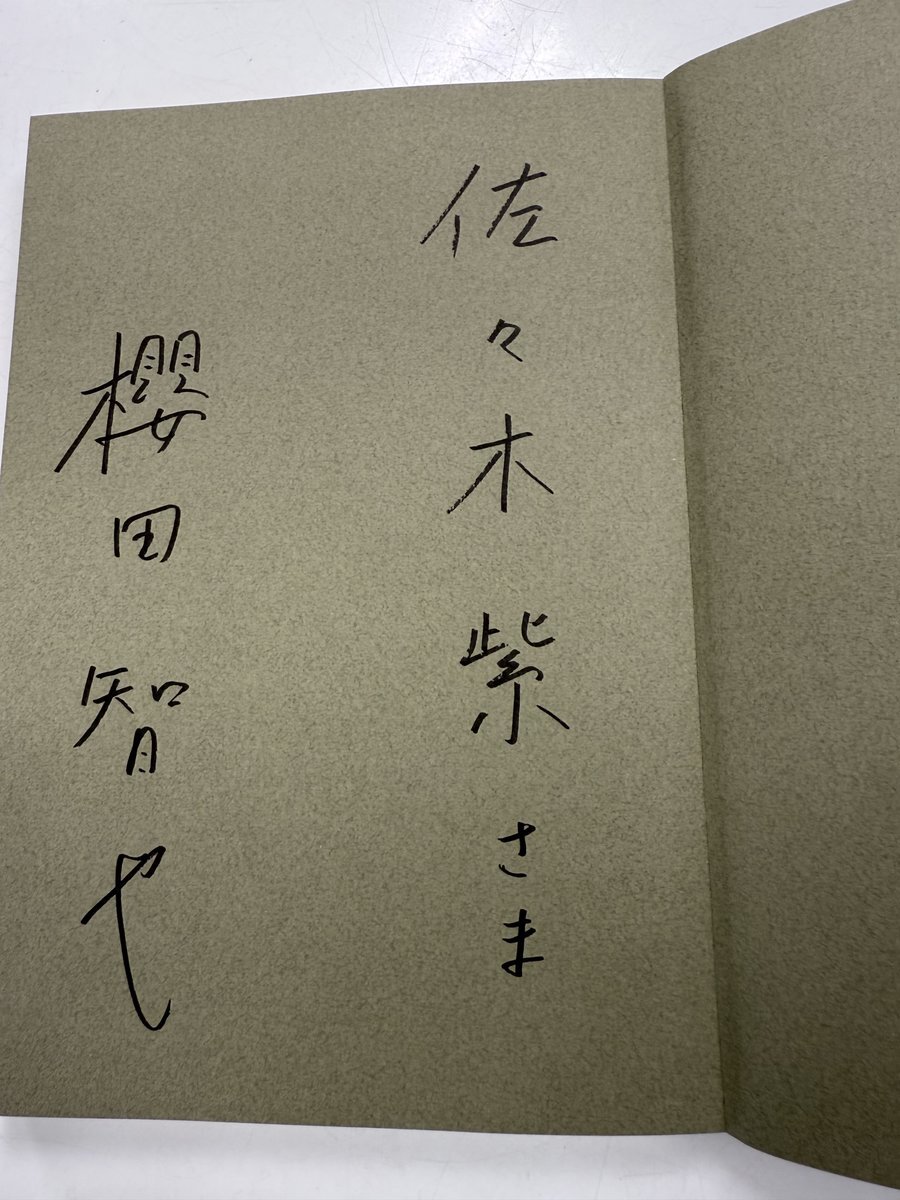 佐々木紫さま
櫻田智也